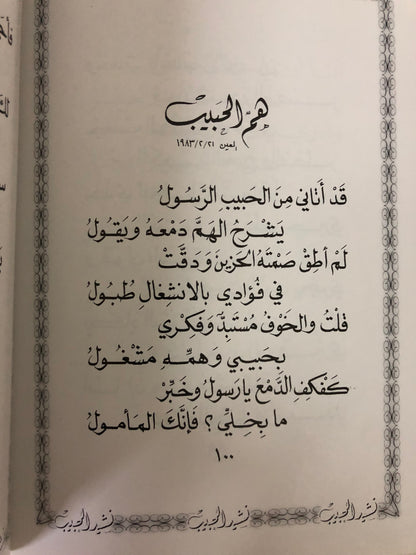 هم الحبيب
العين ١٩٨٣/٢/٢١
قَدْ أَتاني مِنَ الحَبيبِ الرَّسُولُ
يَشْرَحُ الهَمَّ دَمْعَهُ وَيَقُولُ
لَمْ أُطِقْ صَمْتَهُ الحَزينَ وَدقَّتْ
في فُؤادي بالانْشِغالِ طُبُولُ
قلتُ والخَوْفُ مُسْتَبِدٌّ وَفِكْري
بِحَبيبي وَهمِّهِ مَشْغُولُ
كَفْكِفِ الدَّمْعَ يا رَسولُ وخَبِّرْ
ما بِخِلِّي ؟ فَإنَّكَ المَأمولُ
١٠٠
نشيد الحبيب نشيد الحبيب نشيد الحبيب